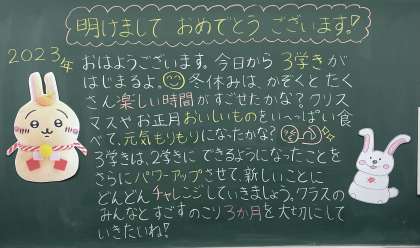 明けまして おめでとう ございます!
2023年
おはようございます。今日から 3学きが
はじまるよ。冬休みは、かぞくと たく
さん楽しい時間がすごせたかな?クリス
マスや お正月 おいしいものを い〜っぱい食
べて、元気もりもりになったかな?
3学きは、2学きに できるようになったことを
さらにパワーアップさせて、新しいことに
どんどん チャレンジしていきましょう。クラスの
みんなと すごす のこり 3か月を 大切にして
いきたいね!